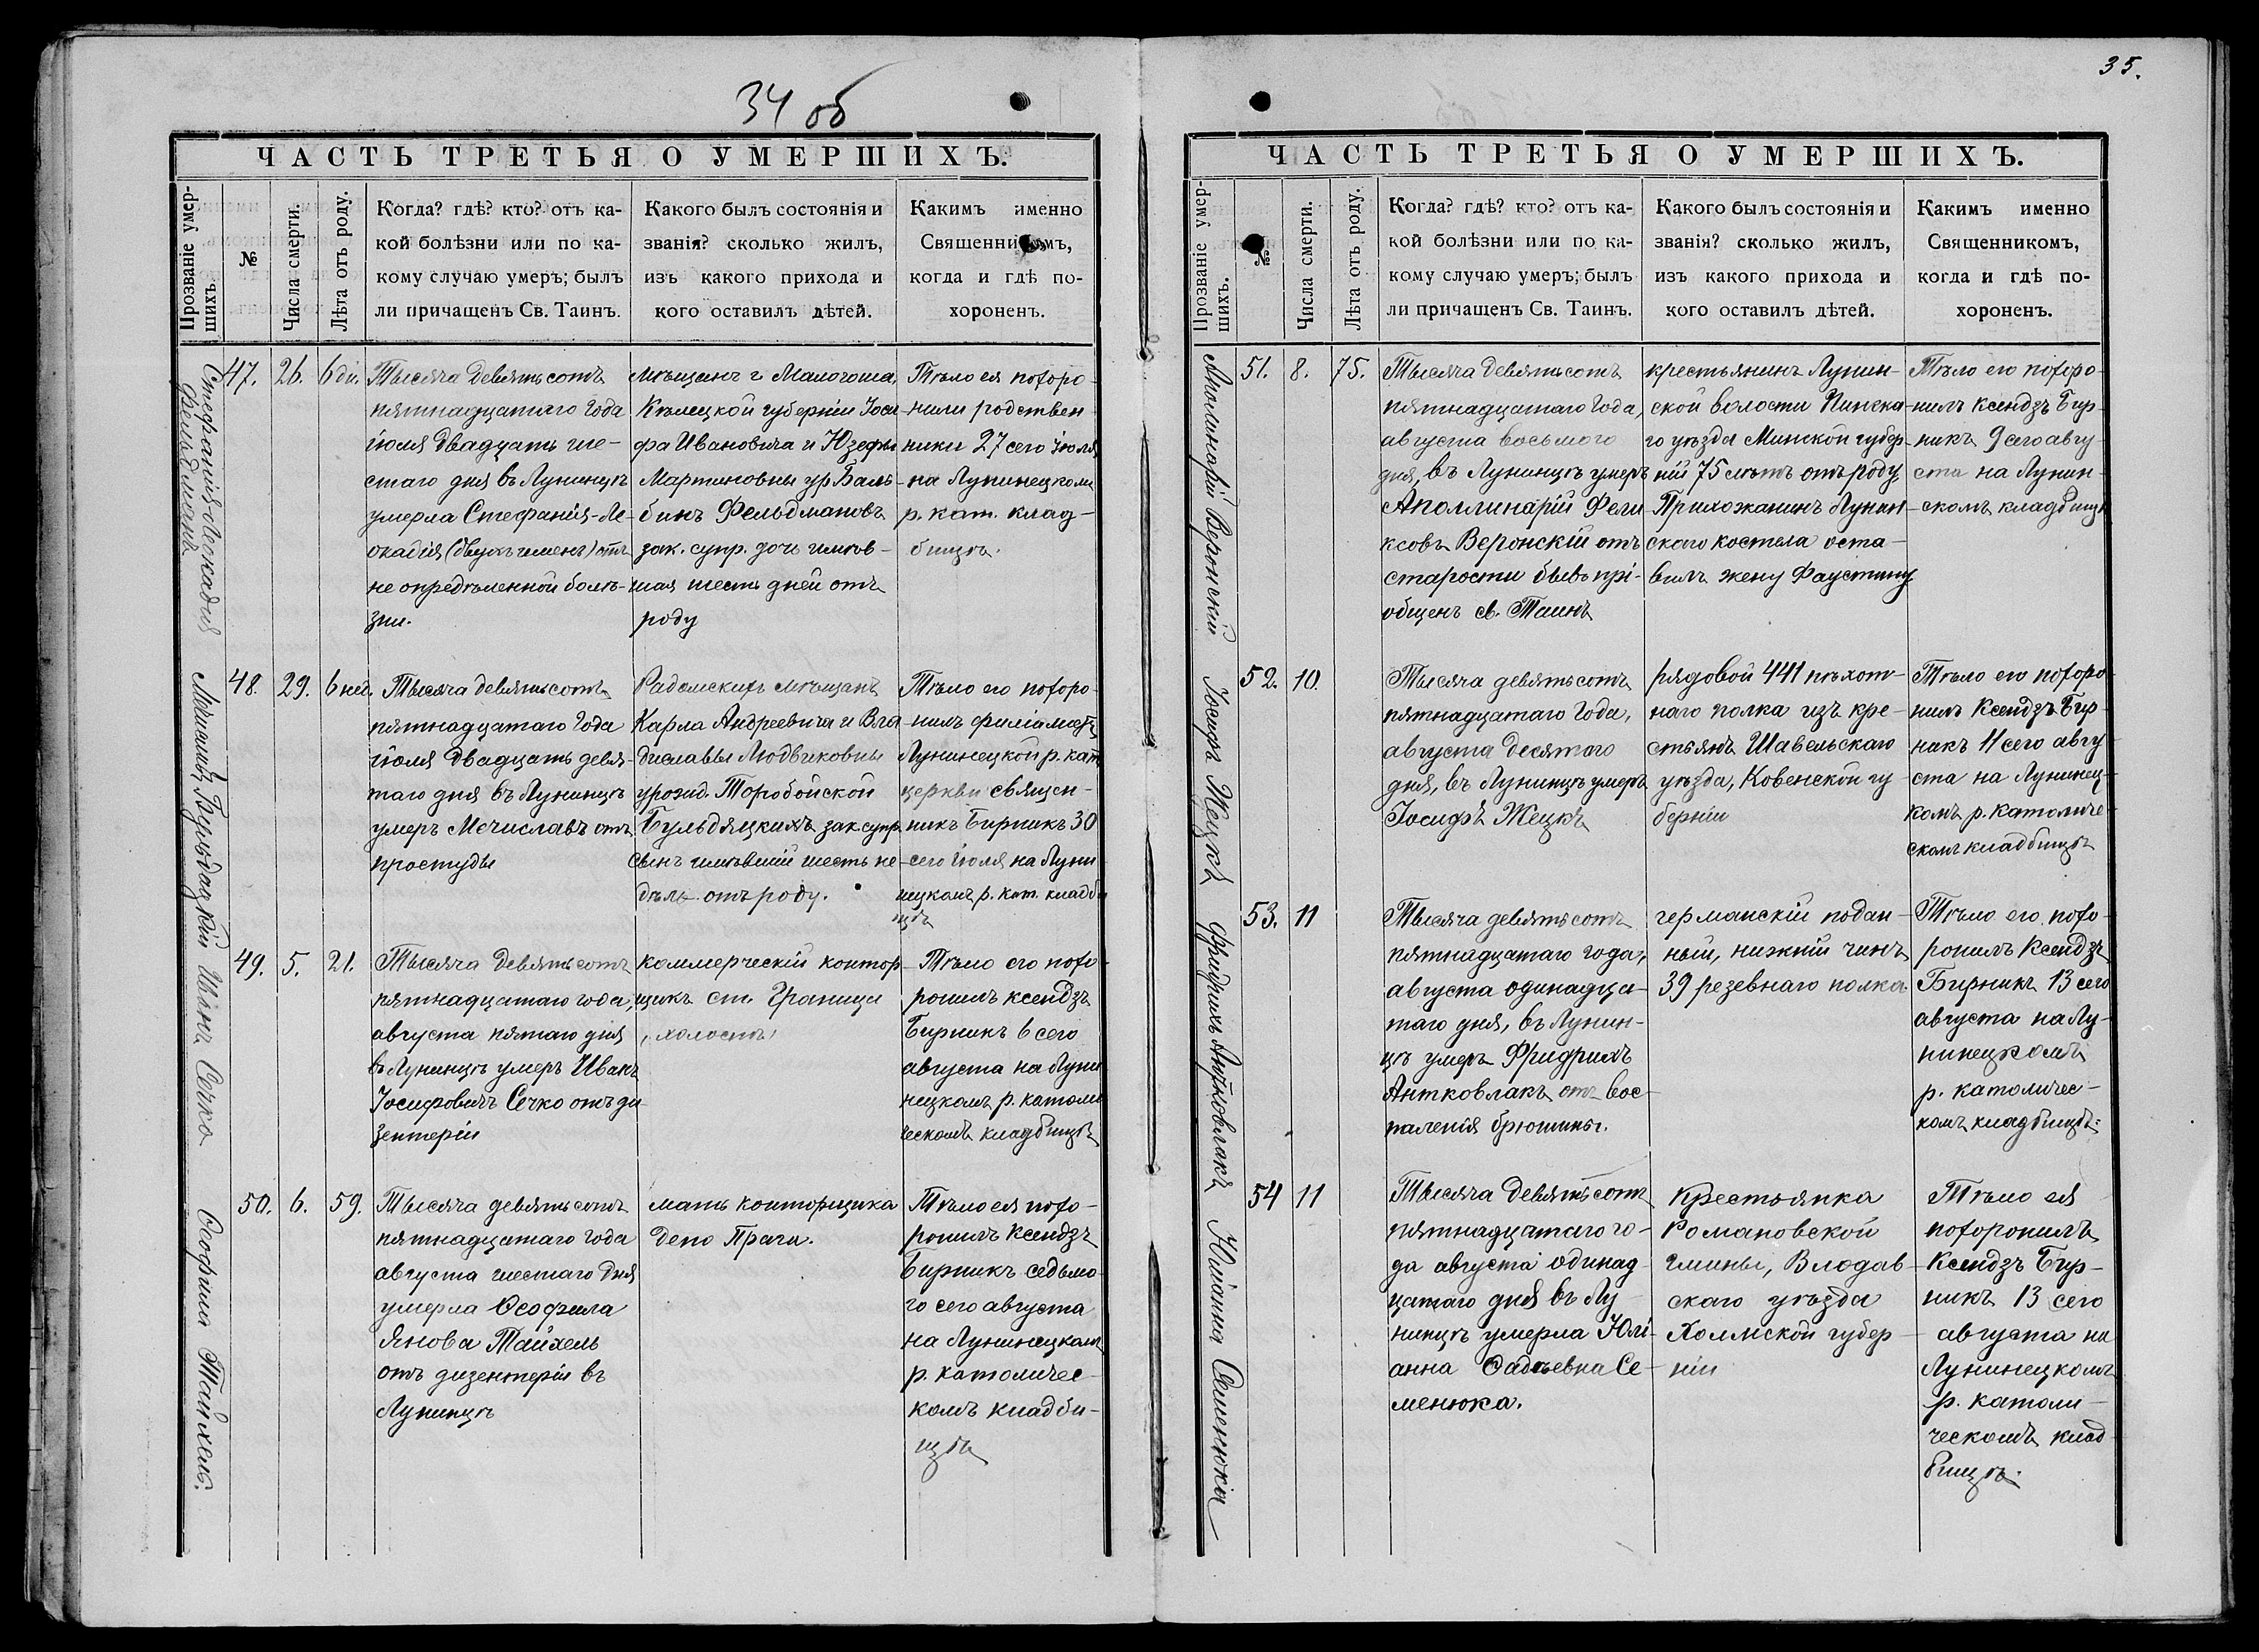 34 об
ЧАСТЬ ТРЕТЬЯ О УМЕРШИХЪ.
Прозваніе умер-
шихъ.
№
Числа смерти.
Лѣта отъ роду.
Когда? гдѣ? кто? отъ ка-
кой болѣзни или по ка-
кому случаю умеръ; былъ
ли причащенъ Св. Таинъ.
Какого былъ состоянія и
званія? сколько жилъ,
изъ какого прихода и
кого оставилъ дѣтей.
Какимъ именно
Священникомъ,
когда и гдѣ по-
хороненъ.
Стефанія-Леокадія
Фельдманъ
47.
26.
6 дн.
Тысяча девятьсотъ
пятнадцатаго года
іюля двадцать ше-
стаго дня въ Лунинцѣ
умерла Стефанія-Ле-
окадія (двухъ именъ) отъ
не опредѣленной болѣ-
зни.
Мѣщанъ г. Малогоща,
Кѣлецкой губерніи Іоси-
фа Ивановича и Юзефы
Мартиновны ур Баль-
бинъ Фельдмановъ
зак. супр. дочь имѣв-
шая шесть дней отъ
роду
Тѣло ея похоро-
нили родствен-
ники 27 сего Іюля
на Лунинецкомъ
р. кат. клад-
бищѣ.
Мечиславъ Бульдяцкій
48.
29.
6 нед.
Тысяча девятьсотъ
пятнадцатаго года
іюля двадцать девя-
таго дня въ Лунинцѣ
умеръ Мечиславъ отъ
простуды
Радомскихъ мѣщанъ
Карла Андреевича и Вла-
диславы Людвиковны
урожд. Торобойской
Бульдяцкихъ зак. супр.
сынъ имѣвшій шесть не-
дѣль отъ роду.
Тѣло его похоро-
нилъ
Лунинецкой р. кат.
церкви священ-
никъ Бирникъ 30
сего іюля на Луни-
нецкомъ р. кат. кладби-
щѣ
Иванъ Сечко
49.
5.
21.
Тысяча девятьсотъ
пятнадцатаго года,
августа пятаго дня
въ Лунинцѣ умеръ Иванъ
Іосифовичъ Сечко отъ ди-
зентеріи
коммерческій контор-
щикъ ст. Граница
, холостъ
Тѣло его похо-
ронилъ ксендзъ
Бирникъ 6 сего
августа на Луни-
нецкомъ р. католи-
ческомъ кладбищѣ
Ѳеофила Тайхель.
50.
6.
59.
Тысяча девятьсотъ
пятнадцатаго года
августа шестаго дня
умерла Ѳеофила
Янова Тайхель
отъ дизентеріи въ
Лунинцѣ
мать конторщика
Депо Прага.
Тѣло ея похо-
ронилъ Ксендзъ
Бирникъ седьмо-
го сего августа
на Лунинецкомъ
р. католичес-
комъ кладби-
щѣ
35.
ЧАСТЬ ТРЕТЬЯ О УМЕРШИХЪ.
Прозваніе умер-
шихъ.
№
Числа смерти.
Лѣта отъ роду.
Когда? гдѣ? кто? отъ ка-
кой болѣзни или по ка-
кому случаю умеръ; былъ
ли причащенъ Св. Таинъ.
Какого былъ состоянія и
званія? сколько жилъ,
изъ какого прихода и
кого оставилъ дѣтей.
Какимъ именно
Священникомъ,
когда и гдѣ по-
хороненъ.
Аполинарій Веронскій
51.
8.
75.
Тысяча девятьсотъ
пятнадцатаго года,
августа восьмого
дня, въ Лунинцѣ умеръ
Аполлинарій Фели-
ксовъ Веронскій отъ
старости бывъ прі-
общенъ св. Таинъ
крестьянинъ Лунин-
ской волости Пинска-
го уѣзда Минской губер-
ніи 75 лѣтъ отъ роду
Прихожанинъ Лунин-
скаго костела оста-
вилъ жену Фаустину
Тѣло его похоро-
нилъ Ксендзъ Бир-
никъ 9 сего авгу-
ста на Лунин-
скомъ кладбищѣ
Іосифъ Жецкъ
52.
10.
Тысяча девятьсотъ
пятнадцатаго года,
августа десятого
дня, въ Лунинцѣ умеръ
Іосифъ Жецкъ
рядовой 441 пѣхот-
наго полка изъ кре-
стьянъ Шавельскаго
уѣзда, Ковенской гу
берніи
Тѣло его похоро-
нилъ Ксендзъ Бир-
никъ 11 сего авгу
ста на Лунинец-
комъ р. католиче-
скомъ кладбищѣ
Фридрихъ Антковлакъ
53.
11
Тысяча девятьсотъ
пятнадцатаго года,
августа одинадца-
таго дня, въ Лунин-
цѣ умеръ Фридрихъ
Антковлакъ отъ вос-
паленія брюшины.
германскій подан-
ный, нижній чинъ
39 резевнаго полка.
Тѣло его похо-
ронилъ Ксендзъ
Бирникъ 13 сего
августа на Лу-
нинецкомъ
р. католичес-
комъ кладбищѣ.
Юліанна Семенюка
54
11
Тысяча девятьсотъ
пятнадцатаго го-
да августа одинад-
цатаго дня въ Лу
нинцѣ умерла Юлі-
анна Фадѣевна Се-
менюка.
Крестьянка
Романовской
гмины, Влодав-
скаго уѣзда
Холмской губер-
ніи
Тѣло ея
похоронилъ
Ксендзъ Бир-
никъ 13 сего
августа на
Лунинецкомъ
р. католи-
ческомъ клад
бищѣ.